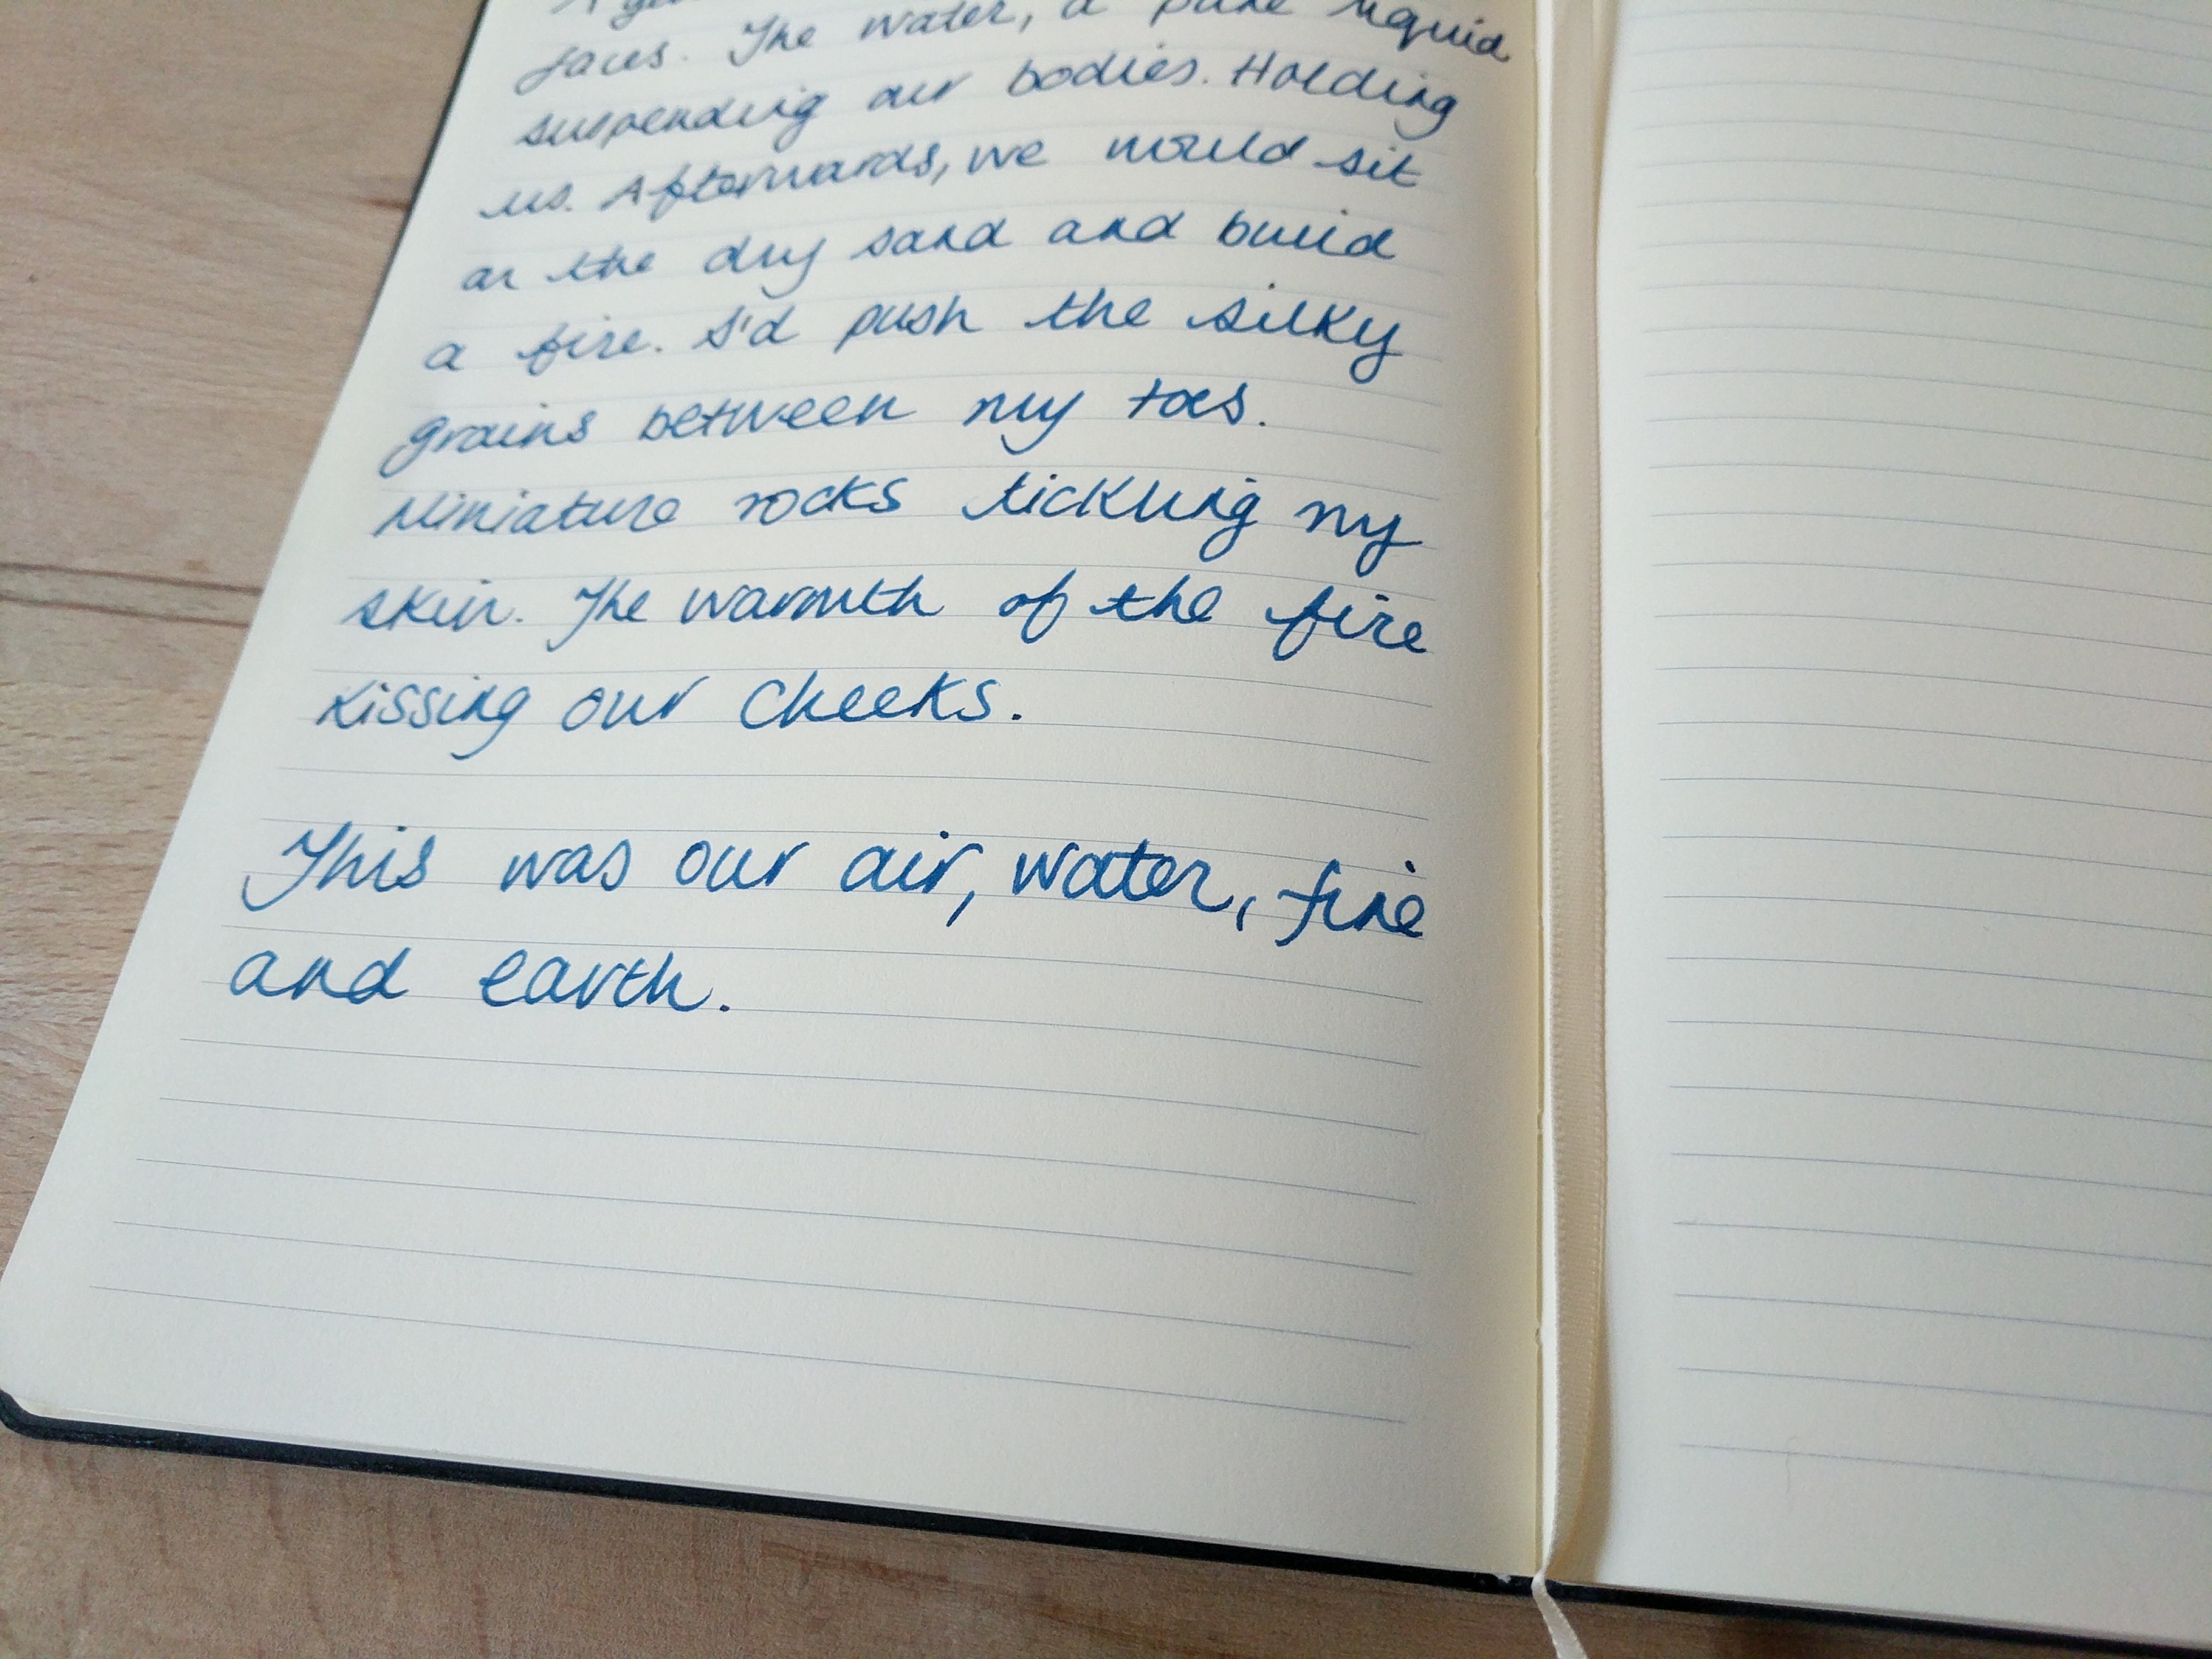 faces. The water, a pure liquid
suspending our bodies. Holding
us. Afterwards, we would sit
on the dry sand and build
a fire. I'd push the silky
grains between my toes.
Miniature rocks tickling my
skin. The warmth of the fire
kissing our cheeks.
This was our air, water, fire
and earth.